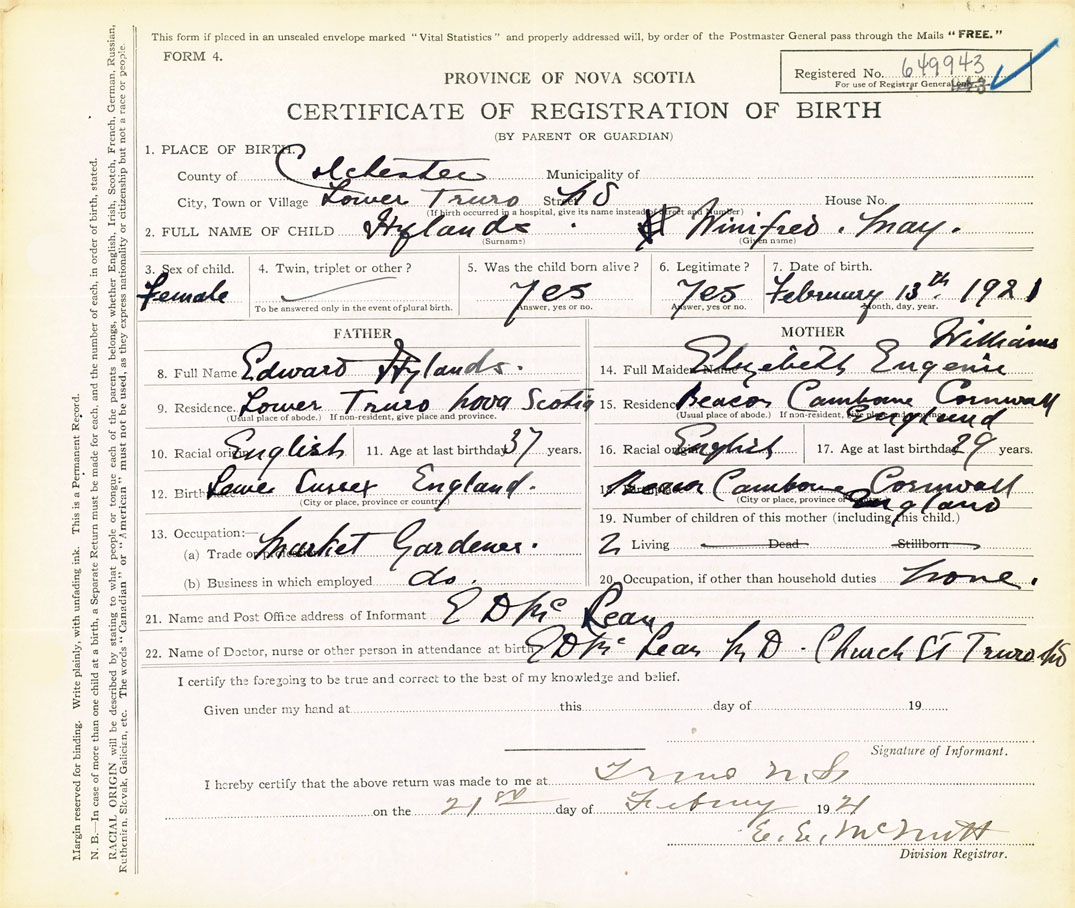 This form if placed in an unsealed envelope marked "Vital Statistics" and properly addressed will, by order of the Postmaster General pass through the Mails "FREE."
FORM 4.
Registered No. 649943
For use of Registrar General only
PROVINCE OF NOVA SCOTIA
CERTIFICATE OF REGISTRATION OF BIRTH
(BY PARENT OR GUARDIAN)
1. PLACE OF BIRTH.
County of Colchester Municipality of
City, Town or Village Lower Truro Street NS House No.
(If birth occurred in a hospital, give its name instead of Street and Number)
2. FULL NAME OF CHILD Hylands Winifred May.
(Surname) (Given name)
3. Sex of child. 4. Twin, triplet or other? 5. Was the child born alive? 6. Legitimate? 7. Date of birth.
Female Yes Yes February 13th 1921
To be answered only in the event of plural birth. Answer, yes or no. Answer, yes or no. Month, day, year.
FATHER
8. Full Name Edward Hylands.
9. Residence. Lower Truro Nova Scotia
(Usual place of abode.) If non-resident, give place and province.
10. Racial origin English 11. Age at last birthday 37 years.
12. Birth Sussex England.
(City or place, province or country)
13. Occupation:—
(a) Trade or profession Market Gardener.
(b) Business in which employed do.
MOTHER
Williams
14. Full Maiden Name Elizabeth Eugenie
15. Residence Beacon Camborne Cornwall
(Usual place of abode.) If non-resident, give place and province.
England
16. Racial origin English 17. Age at last birthday 29 years.
18. Birthplace Beacon Camborne Cornwall
(City or place, province or country)
England
19. Number of children of this mother (including this child.)
2 Living Dead Stillborn
20. Occupation, if other than household duties None.
21. Name and Post Office address of Informant E D McLean
22. Name of Doctor, nurse or other person in attendance at birth E D McLean M D. Church St Truro NS
I certify the foregoing to be true and correct to the best of my knowledge and belief.
Given under my hand at this day of 19
Signature of Informant.
I hereby certify that the above return was made to me at Truro N.S
on the 21st day of February 1921
E. E. McNutt
Division Registrar.
Margin reserved for binding. Write plainly, with unfading ink. This is a Permanent Record.
N. B.—In case of more than one child at a birth, a Separate Return must be made for each, and the number of each, in order of birth, stated.
RACIAL ORIGIN will be described by stating to what people or tongue each of the parents belongs, whether English, Irish, Scotch, French, German, Russian,
Ruthenian, Slovak, Galician, etc. The words "Canadian" or "American" must not be used, as they express nationality or citizenship but not a race or people.